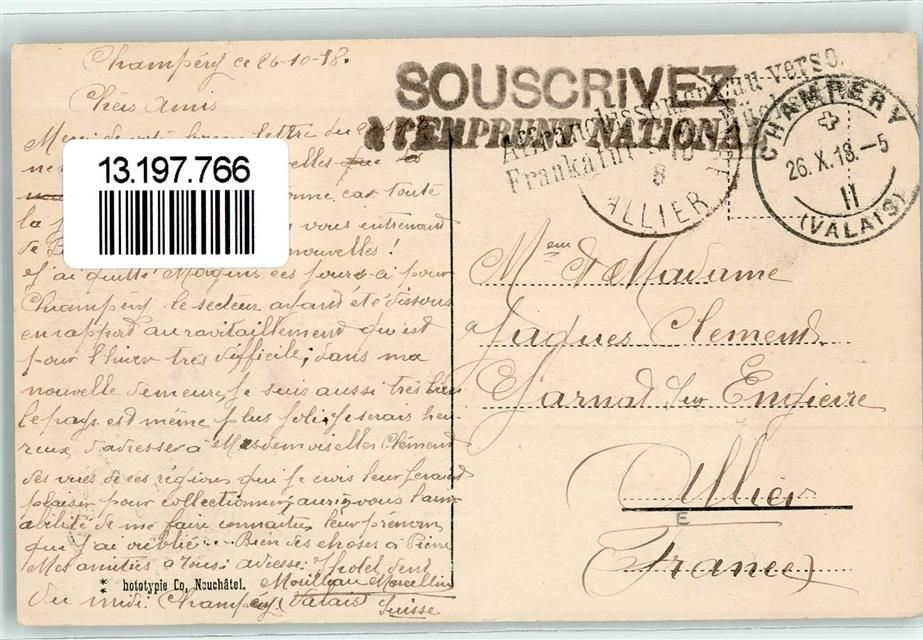 Champéry ce 26-10-18.
Chers Amis
Merci de votre bonne lettre du
ne
13.197.766
car toute
la
vous entretenant
de
nouvelles !
J'ai quitté Morgins ces jours-ci pour
Champéry le secteur ayant été dissous
en rapport au ravitaillement qui est
pour l'hiver très difficile; dans ma
nouvelle demeure, je suis aussi très bien
le pays est même plus joli. Je serais heu-
reux d'adresser à Mesdemoiselles Clément
des vues de ces régions qui je crois leur feraient
plaisir pour collectionner; auriez-vous l'am-
abilité de me faire connaître leur prénom
que j'ai oublié... Bien des choses à Pierre
Mes amitiés à tous. adresse: Hotel dent
du midi. Champéry (Valais) Suisse
Mouilleau Marcellin
* hototypie Co, Neuchâtel.
SOUSCRIVEZ
à l'EMPRUNT NATIONAL
Affranchissement au verso.
Frankatur
8
ALLIER
CHAMPÉRY
26.X.18.-5
II
(VALAIS)
Mr et Madame
Jaques Clement
à Jarnat sur Engievre
Allier
E
(France)